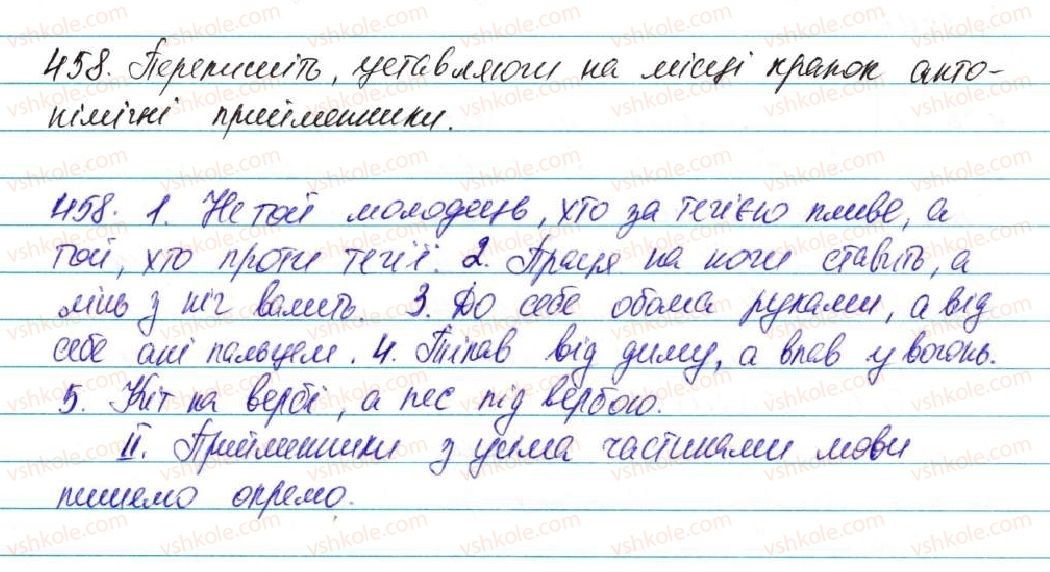 458. Перепишіть, уставляючи на місці крапок анто-
німічні прийменники.
458. 1. Не той молодець, хто за течією пливе, а
той, хто проти течії. 2. Праця на ноги ставить, а
лінь з ніг валить. 3. До себе обома руками, а від
себе ані пальцем. 4. Тікав від диму, а впав у вогонь.
5. Кіт на вербі, а пес під вербою.
II. Прийменники з усіма частинами мови
пишемо окремо.